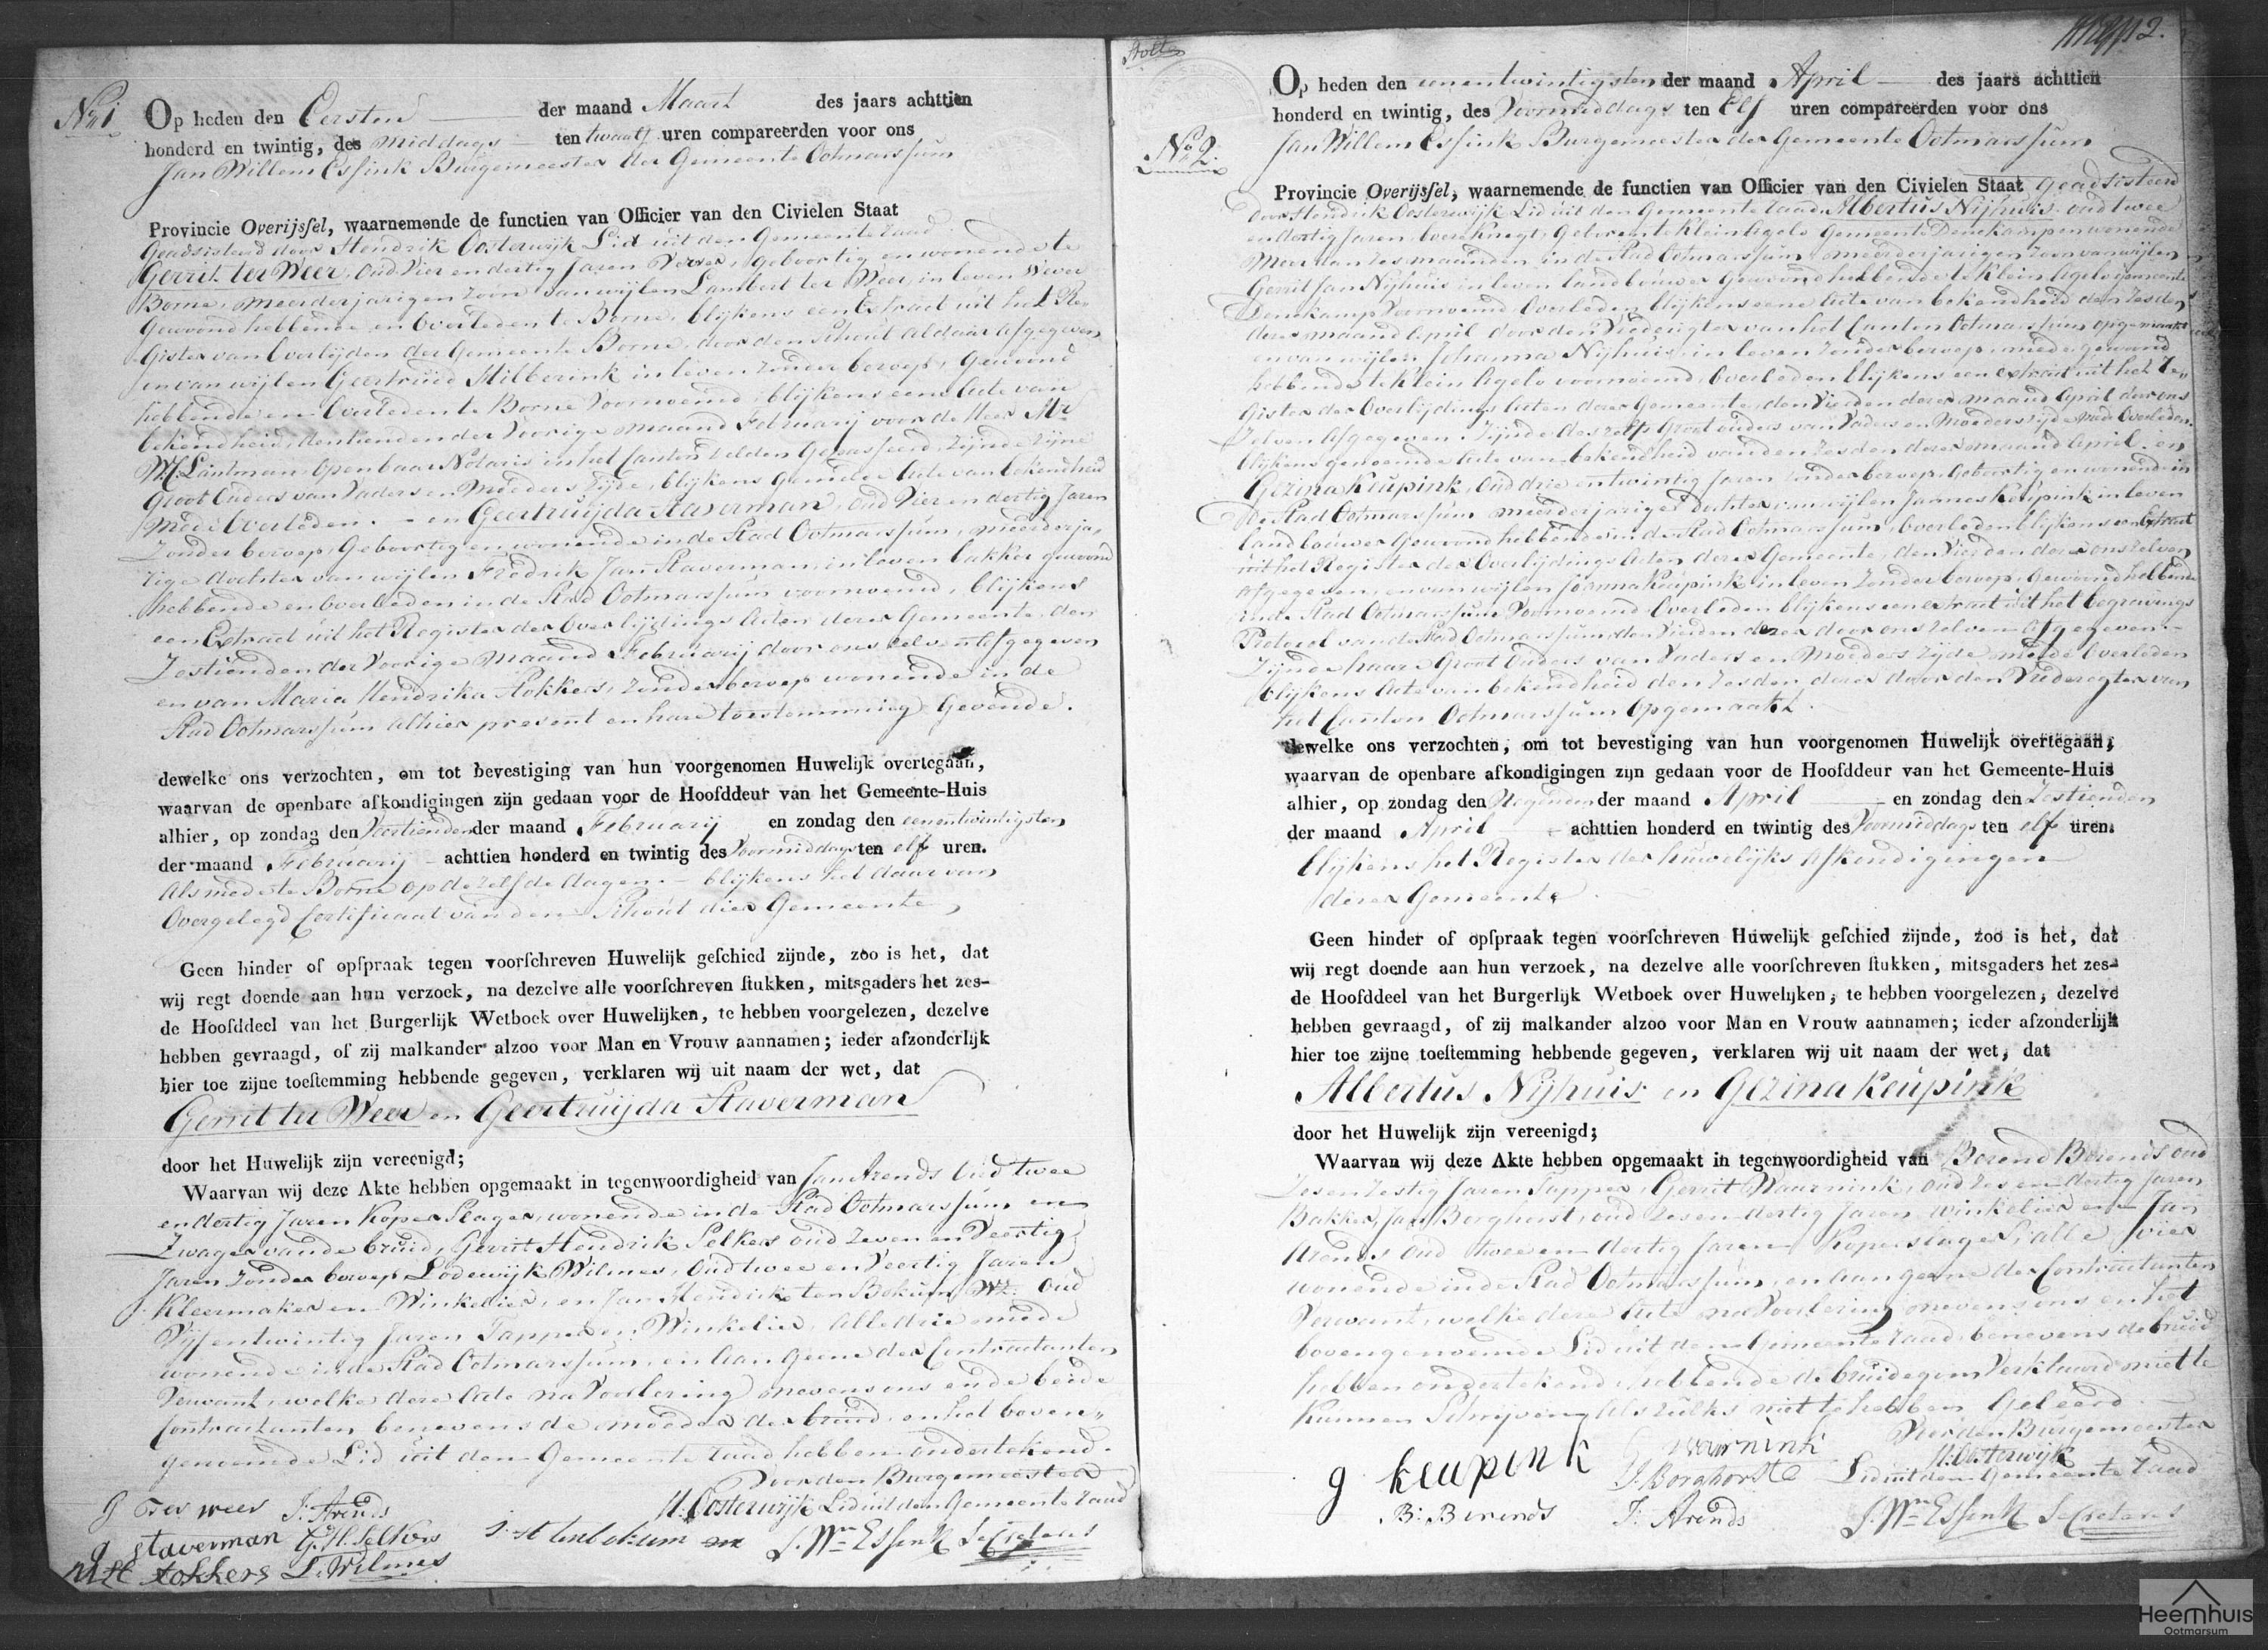 No 1
Op heden den Eersten der maand Maart des jaars achttien
honderd en twintig, des middags ten twaalf uren compareerden voor ons
Jan Willem Essink Burgemeester der Gemeente Ootmarssum
Provincie Overijssel, waarnemende de functien van Officier van den Civielen Staat
Geadsisteerd door Hendrik Oosterwijk Lid uit den Gemeente raad
Gerrit ter Weer, oud vier en dertig Jaren Wever, geboortig en wonende te
Borne, meerderjarigen Zoon van wijlen Lambert ter Weer, in leven Wever
Gewoond hebbende en overleden te Borne, blijkens een Extract uit het Re-
gister van overlijden der Gemeente Borne, door den Schout aldaar afgegeven
en van wijlen Geertruid Hilberink in leven zonder beroep, Gewoond
hebbende en overleden te Borne voornoemd, blijkens eene Acte van
bekendheid, den tienden der voorige maand Februarij voor de Heer Mr
W. Lantman openbaar Notaris in het Canton Delden Gepasseerd, zijnde zijne
Groot Ouders van Vaders en Moeders zijde, blijkens gemelde Acte van bekendheid
mede overleden. - en Geertruijda Staverman, oud vier en dertig Jaren
Zonder beroep, Geboortig en wonende in de Stad Ootmarssum, meerderja-
rige dochter van wijlen Fredrik Jan Staverman, in leven bakker gewoond
hebbende en overleden in de Stad Ootmarssum voornoemd, blijkens
een Extract uit het Register der Overlijdings Acten dezer Gemeente, den
Zestienden der Voorige Maand Februarij door ons zelven afgegeven
en van Maria Hendrika Stokkers, zonder beroep wonende in de
Stad Ootmarssum alhier present en hare toestemming Gevende.
dewelke ons verzochten, om tot bevestiging van hun voorgenomen Huwelijk overtegaan,
waarvan de openbare afkondigingen zijn gedaan voor de Hoofddeur van het Gemeente-Huis
alhier, op zondag den Veertienden der maand Februarij en zondag den eenentwintigsten
der maand Februarij achttien honderd en twintig des Voormiddags ten elf uren.
Als mede te Borne op de zelfde dagen - blijkens het daar van
Overgelegd Certificaat van den Schout dier Gemeente
Geen hinder of opspraak tegen voorschreven Huwelijk geschied zijnde, zoo is het, dat
wij regt doende aan hun verzoek, na dezelve alle voorschreven stukken, mitsgaders het zes-
de Hoofddeel van het Burgerlijk Wetboek over Huwelijken, te hebben voorgelezen, dezelve
hebben gevraagd, of zij malkander alzoo voor Man en Vrouw aannamen; ieder afzonderlijk
hier toe zijne toestemming hebbende gegeven, verklaren wij uit naam der wet, dat
Gerrit ter Weer en Geertruijda Staverman
door het Huwelijk zijn vereenigd;
Waarvan wij deze Akte hebben opgemaakt in tegenwoordigheid van Jan Arends Oud twee
en dertig Jaren Koper Slager, wonende in de Stad Ootmarssum en
Zwager van de bruid, Gerrit Hendrik Selkers oud zeven en Veertig
Jaren zonder beroep, Lodewijk Wilmes, Oud twee en Veertig Jaren
Kleermaker en Winkelier, en Jan Hendrick ten Bokum Wz. Oud
Vijfentwintig Jaren Tapper en Winkelier, Alle drie mede
wonende in de Stad Ootmarssum, en Aan geene der Contractanten
Verwant, welke deze Acte na Voorlezing nevens ons en de beide
Contractanten benevens de moeder der bruid, en het boven-
genoemde Lid uit den Gemeente raad hebben ondertekend.
Voor den Burgemeester
H. Oosterwijk Lid uit den Gemeente raad
g ter weer J. Arends
g staverman G.H. Selkers J. H ten bokum wz J. Wm Essink Secretaris
M H stokkers L. Wilmes
2.
No 2.
Op heden den eenentwintigsten der maand April des jaars achttien
honderd en twintig, des Voormiddags ten Elf uren compareerden voor ons
Jan Willem Essink Burgemeester der Gemeente Ootmarssum
Provincie Overijssel, waarnemende de functien van Officier van den Civielen Staat Geadsisteerd
door Hendrik Oosterwijk Lid uit den Gemeente raad Albertus Nijhuis. oud twee
en dertig Jaren, boere Knegt, Geboren te Klein Agelo Gemeente Denekamp en wonende
Meer dan zes maanden in de Stad Ootmarssum, meerderjarigen Zoon van wijlen
Gerrit Jan Nijhuis in leven landbouwer Gewoond hebbende te Klein Agelo gemeente
Denekamp Voornoemd, Overleden blijkens eene Acte van bekendheid den Zesden
dezer maand April door den Vrederegter van het Canton Ootmarssum opgemaakt
en van wijlen Johanna Nijhuis, in leven Zonder beroep, mede gewoond
hebbende te Klein Agelo voornoemd, Overleden blijkens een extract uit het Re-
gister der Overlijdings Acten dezer Gemeente, den Vierden dezer maand April door ons
Zelven Afgegeven. Zijnde deszelfs Groot ouders van Vaders en Moeders zijde mede Overleden
blijkens genoemde Acte van bekendheid van den Zesden dezer maand April. en
Gezina Keupink, Oud drie en twintig Jaren Zonder beroep, Geboortig en wonende in
de Stad Ootmarssum meerderjarige dochter van wijlen Jannes Keupink in leven
landbouwer Gewoond hebbende in de Stad Ootmarssum, Overleden blijkens een Extract
uit het Register der Overlijdings Acten dezer Gemeente, den Vierden dezer ons zelven
afgegeven, en van wijlen Joanna Keupink in leven Zonder beroep, Gewoond hebbende
in de Stad Ootmarssum Voornoemd, Overleden blijkens een extract uit het begravings
Protocol van de Stad Ootmarssum, den Vierden dezer door ons zelven Afgegeven -
Zijnde haare Groot Ouders van Vaders en Moeders zijde mede Overleden
blijkens Acte van bekendheid den Zesden dezer door den Vrederegter van
het Canton Ootmarssum Opgemaakt.
dewelke ons verzochten, om tot bevestiging van hun voorgenomen Huwelijk overtegaan,
waarvan de openbare afkondigingen zijn gedaan voor de Hoofddeur van het Gemeente-Huis
alhier, op zondag den Negenden der maand April en zondag den Zestienden
der maand April achttien honderd en twintig des Voormiddags ten elf uren.
blijkens het Register der huwelijks Afkondigingen
dezer Gemeente
Geen hinder of opspraak tegen voorschreven Huwelijk geschied zijnde, zoo is het, dat
wij regt doende aan hun verzoek, na dezelve alle voorschreven stukken, mitsgaders het zes-
de Hoofddeel van het Burgerlijk Wetboek over Huwelijken, te hebben voorgelezen, dezelve
hebben gevraagd, of zij malkander alzoo voor Man en Vrouw aannamen; ieder afzonderlijk
hier toe zijne toestemming hebbende gegeven, verklaren wij uit naam der wet, dat
Albertus Nijhuis en Gezina Keupink
door het Huwelijk zijn vereenigd;
Waarvan wij deze Akte hebben opgemaakt in tegenwoordigheid van Berend Berends oud
Zes en Zestig Jaren Tapper, Gerrit Waarnink, oud Zes en dertig Jaren
Bakker, Jan Borghorst, oud Zes en dertig Jaren Winkelier en Jan
Arends Oud twee en dertig Jaren Koperslager, alle vier
wonende in de Stad Ootmarssum, en Aan geene der Contractanten
Verwant, welke deze Acte na Voorlezing nevens ons en het
bovengenoemde Lid uit den Gemeente raad, benevens de bruid
hebben ondertekend, hebbende de bruidegom Verklaard niet te
Kunnen Schrijven, Als zulks niet te hebben Geleerd
Voor den Burgemeester
H. Oosterwijk
Lid uit den Gemeente raad
g keupink G waarnink
J. Borghorst
B: Berends J: Arends J. Wm Essink Secretaris
Heemhuis
Ootmarsum